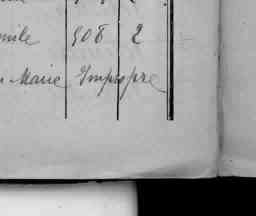 mile 908 2
Marie Impropre